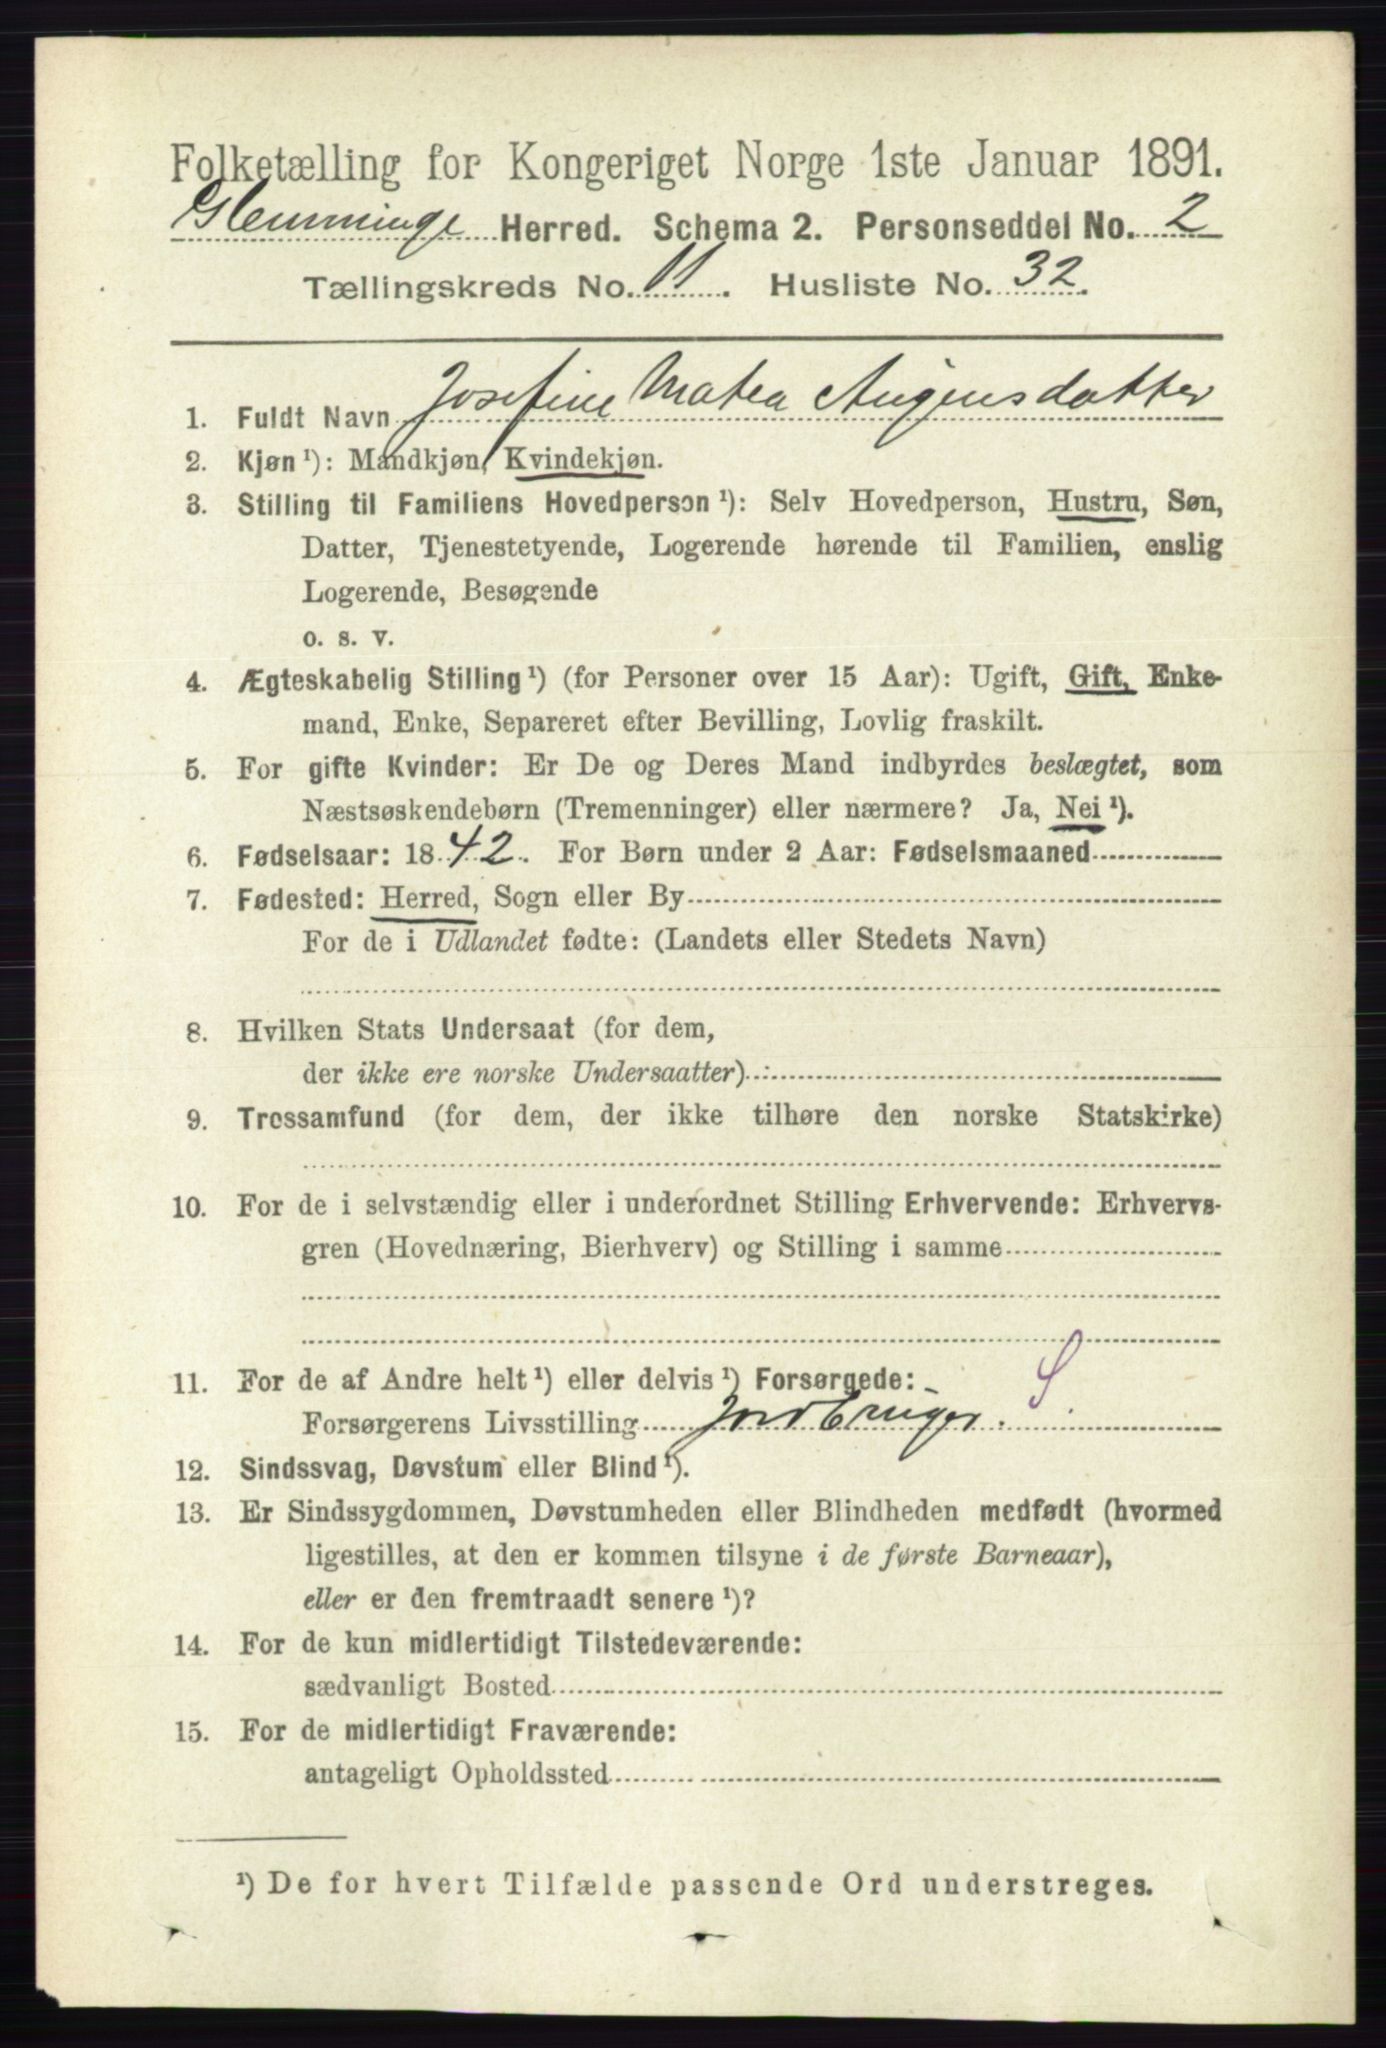 Folketælling for Kongeriget Norge 1ste Januar 1891.
Glemminge Herred. Schema 2. Personseddel No. 2
Tællingskreds No. 11. Husliste No. 32.
1. Fuldt Navn Josefine Matea Augensdatter
2. Kjøn ¹): Mandkjøn, Kvindekjøn.
3. Stilling til Familiens Hovedperson ¹): Selv Hovedperson, Hustru, Søn,
Datter, Tjenestetyende, Logerende hørende til Familien, enslig
Logerende, Besøgende
o. s. v.
4. Ægteskabelig Stilling ¹) (for Personer over 15 Aar): Ugift, Gift, Enke-
mand, Enke, Separeret efter Bevilling, Lovlig fraskilt.
5. For gifte Kvinder: Er De og Deres Mand indbyrdes beslægtet, som
Næstsøskendebørn (Tremenninger) eller nærmere? Ja, Nei ¹).
6. Fødselsaar: 1842. For Børn under 2 Aar: Fødselsmaaned
7. Fødested: Herred, Sogn eller By
For de i Udlandet fødte: (Landets eller Stedets Navn)
8. Hvilken Stats Undersaat (for dem,
der ikke ere norske Undersaatter)
9. Trossamfund (for dem, der ikke tilhøre den norske Statskirke)
10. For de i selvstændig eller i underordnet Stilling Erhvervende: Erhvervs-
gren (Hovednæring, Bierhverv) og Stilling i samme
11. For de af Andre helt ¹) eller delvis ¹) Forsørgede: S
Forsørgerens Livsstilling Jordbruger.
12. Sindssvag, Døvstum eller Blind ¹).
13. Er Sindssygdommen, Døvstumheden eller Blindheden medfødt (hvormed
ligestilles, at den er kommen tilsyne i de første Barneaar),
eller er den fremtraadt senere ¹)?
14. For de kun midlertidigt Tilstedeværende:
sædvanligt Bosted
15. For de midlertidigt Fraværende:
antageligt Opholdssted
¹) De for hvert Tilfælde passende Ord understreges.